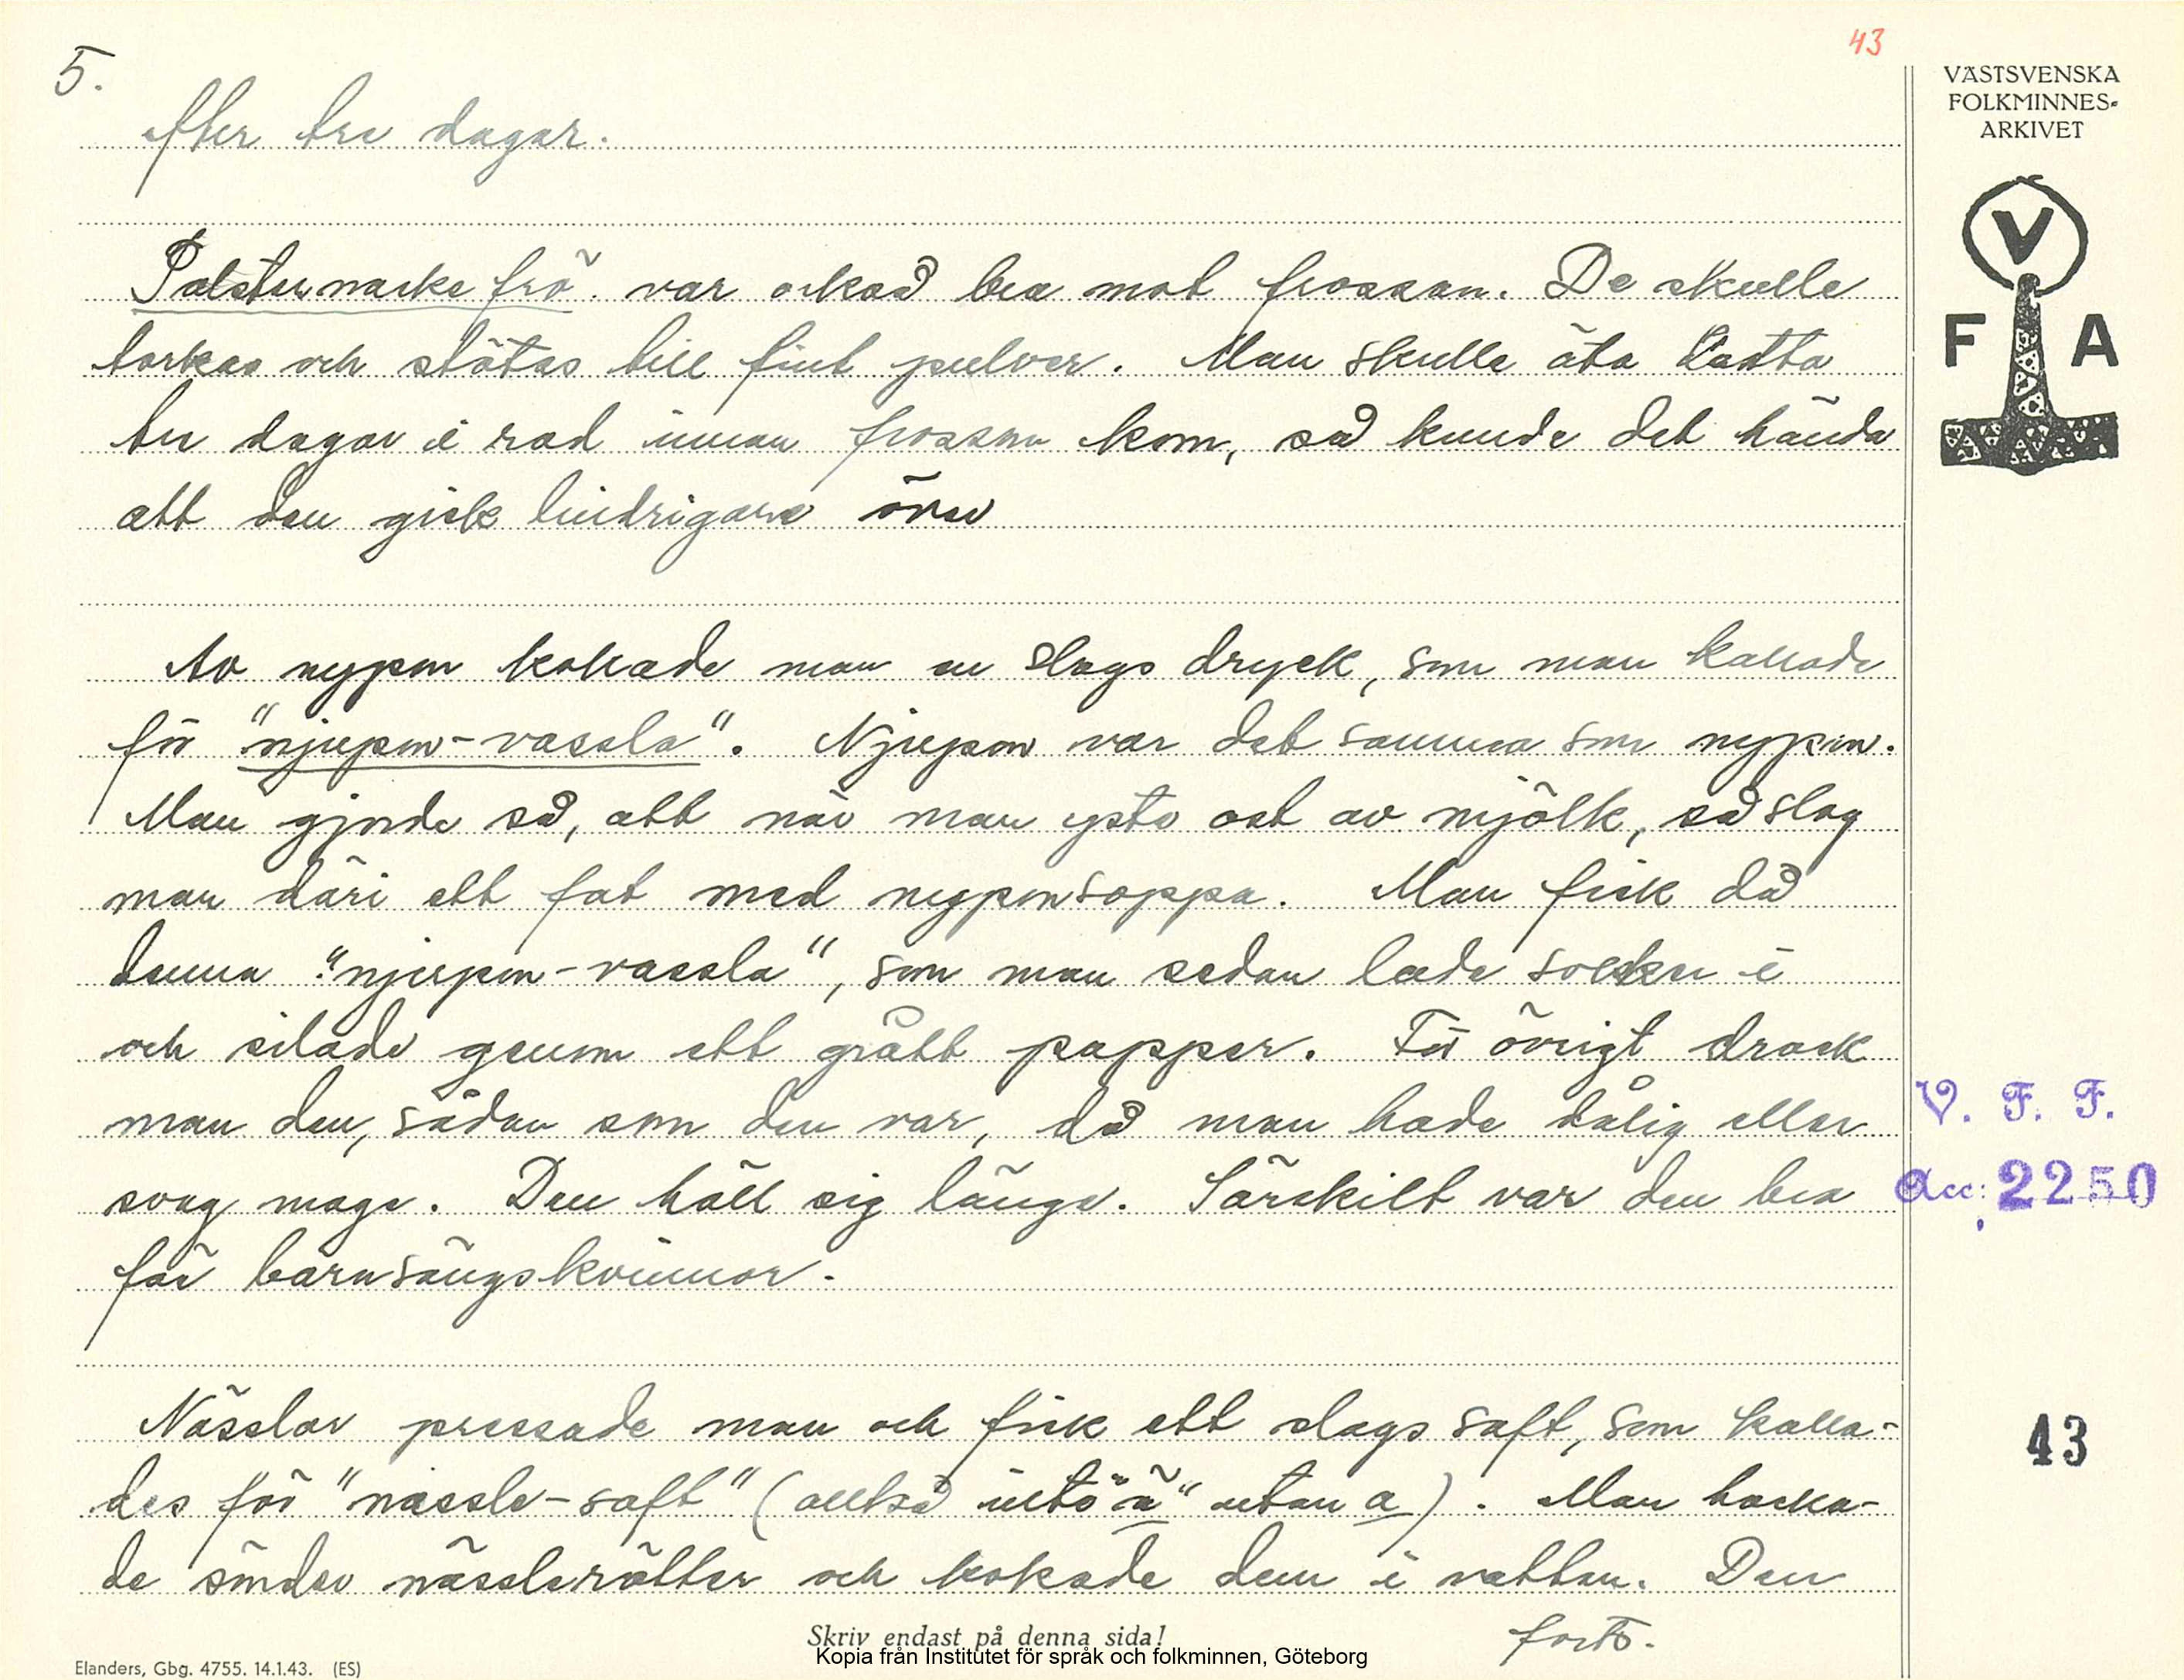 43
5.
VÄSTSVENSKA
FOLKMINNES-
ARKIVET
V
F A
efter tre dagar.
Palsternacke frö. var också bra mot frossan. De skulle
torkas och stötas till fint pulver. Man skulle äta detta
tre dagar i rad innan frossan kom, så kunde det hända
att den gick lindrigare över
Av nypon kokade man en slags dryck, som man kallade
för "njupon-vassla". Njupon var det samma som nypon.
Man gjorde så, att när man yste ost av mjölk, så slog
man däri ett fat med nyponsoppa. Man fick då
denna "njupon-vassla", som man sedan lade socker i
och silade genom ett grått papper. För övrigt drack
man den, sådan som den var, då man hade dålig eller
svag mage. Den höll sig länge. Särskilt var den bra
för barnsängskvinnor.
V. F. F.
Acc: 2250
Nässlor pressade man och fick ett slags saft, som kalla-
des för "nassle-saft" (alltså inte "ä" utan a). Man hacka-
de sönder nässlerötter och kokade dem i vatten. Den
43
forts.
Skriv endast på denna sida!
Kopia från Institutet för språk och folkminnen, Göteborg
Elanders, Gbg. 4755. 14.1.43. (ES)